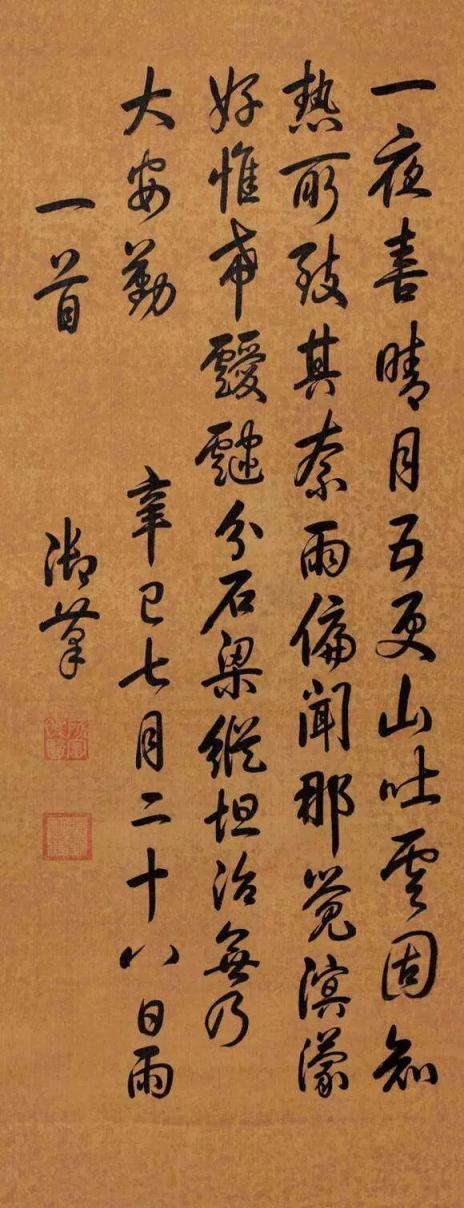 一夜喜晴月五更山吐雲固知
熱所致其奈雨偏聞那覺溟濛
好惟希靉靆分石梁縱坦治無乃
大安勤 辛巳七月二十八日雨
一首 御筆